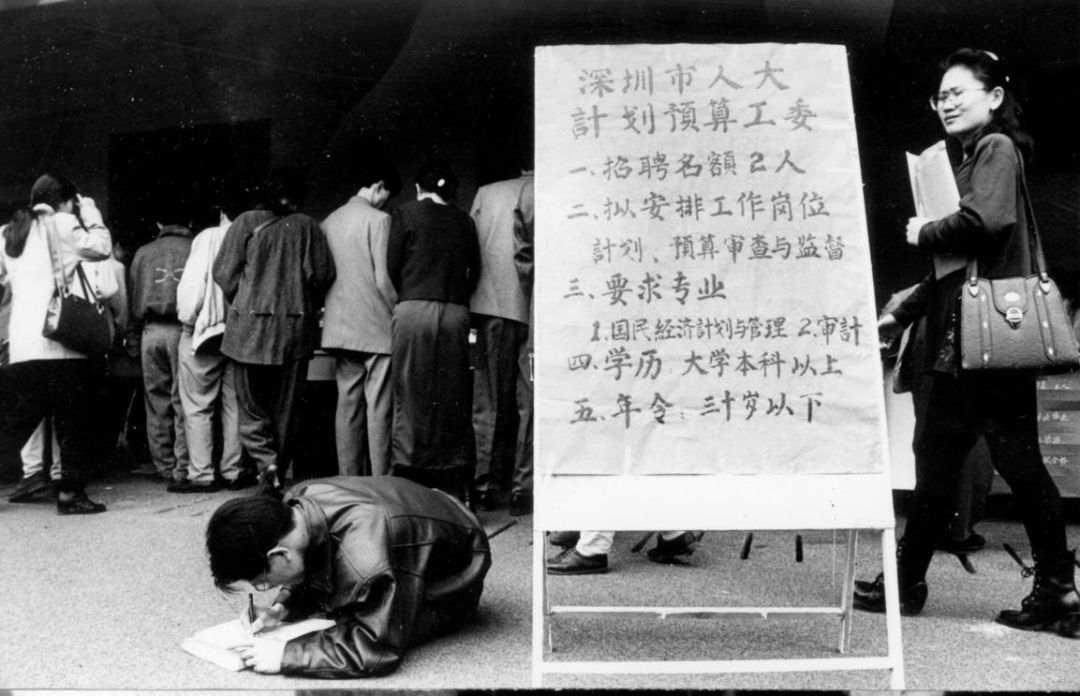 深圳市人大
計划預算工委
一、招聘名額2人
二、拟安排工作岗位
計划、預算審查与监督
三、要求专业
1.国民経济計划与管理 2.审計
四、学历 大学本科以上
五、年令：三十岁以下